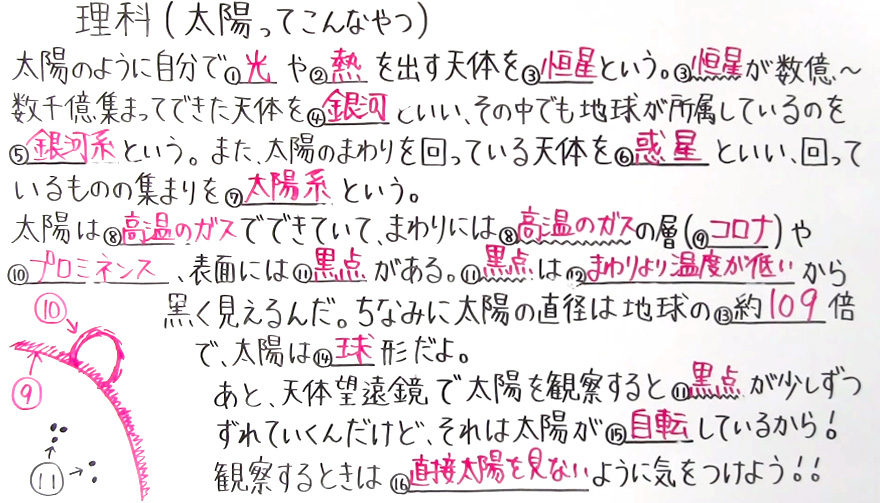 理科(太陽ってこんなやつ)
太陽のように自分で①光や②熱を出す天体を③恒星という。③恒星が数億〜
数千億集まってできた天体を④銀河といい、その中でも地球が所属しているのを
⑤銀河系という。また、太陽のまわりを回っている天体を⑥惑星といい、回って
いるものの集まりを⑦太陽系という。
太陽は⑧高温のガスでできていて、まわりには⑧高温のガスの層(⑨コロナ)や
⑩プロミネンス、表面には⑪黒点がある。⑪黒点は⑫まわりより温度が低いから
黒く見えるんだ。ちなみに太陽の直径は地球の⑬約109倍
で、太陽は⑭球形だよ。
あと、天体望遠鏡で太陽を観察すると⑪黒点が少しずつ
ずれていくんだけど、それは太陽が⑮自転しているから!
観察するときは⑯直接太陽を見ないように気をつけよう!!
⑩
⑨
⑪